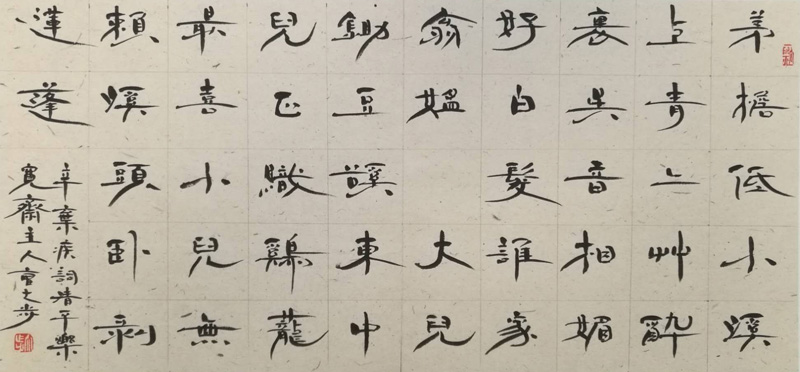 茅檐低小溪
上青〻艸醉
裏吳音相媚
好白髮誰家
翁媼 大兒
鋤豆谿東中
兒正織鷄蘢
最喜小兒無
賴溪頭卧剥
蓮蓬
辛棄疾詞清平樂
寬齋主人